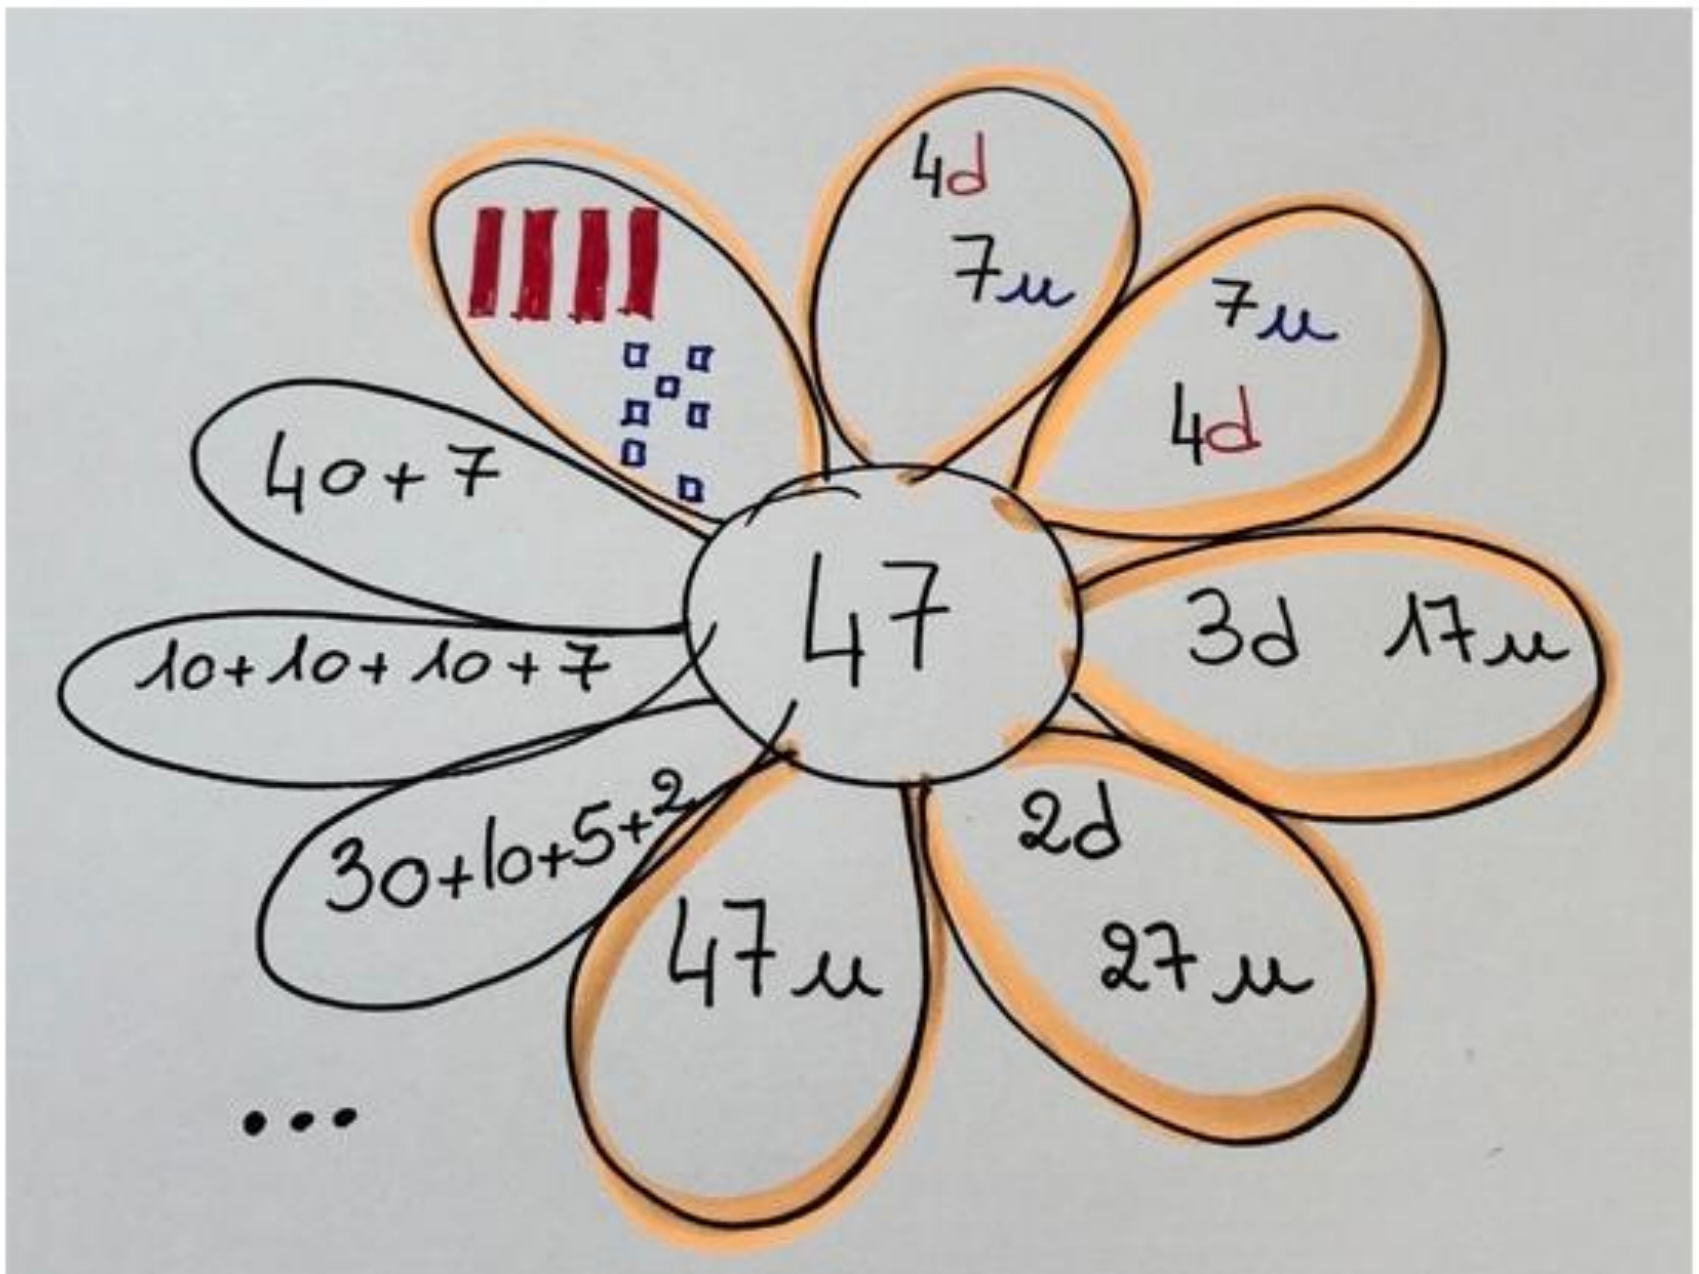 4d
7u
7u
4d
40+7
47
3d 17u
10+10+10+7
2d
30+10+5+2
47u
27u
...